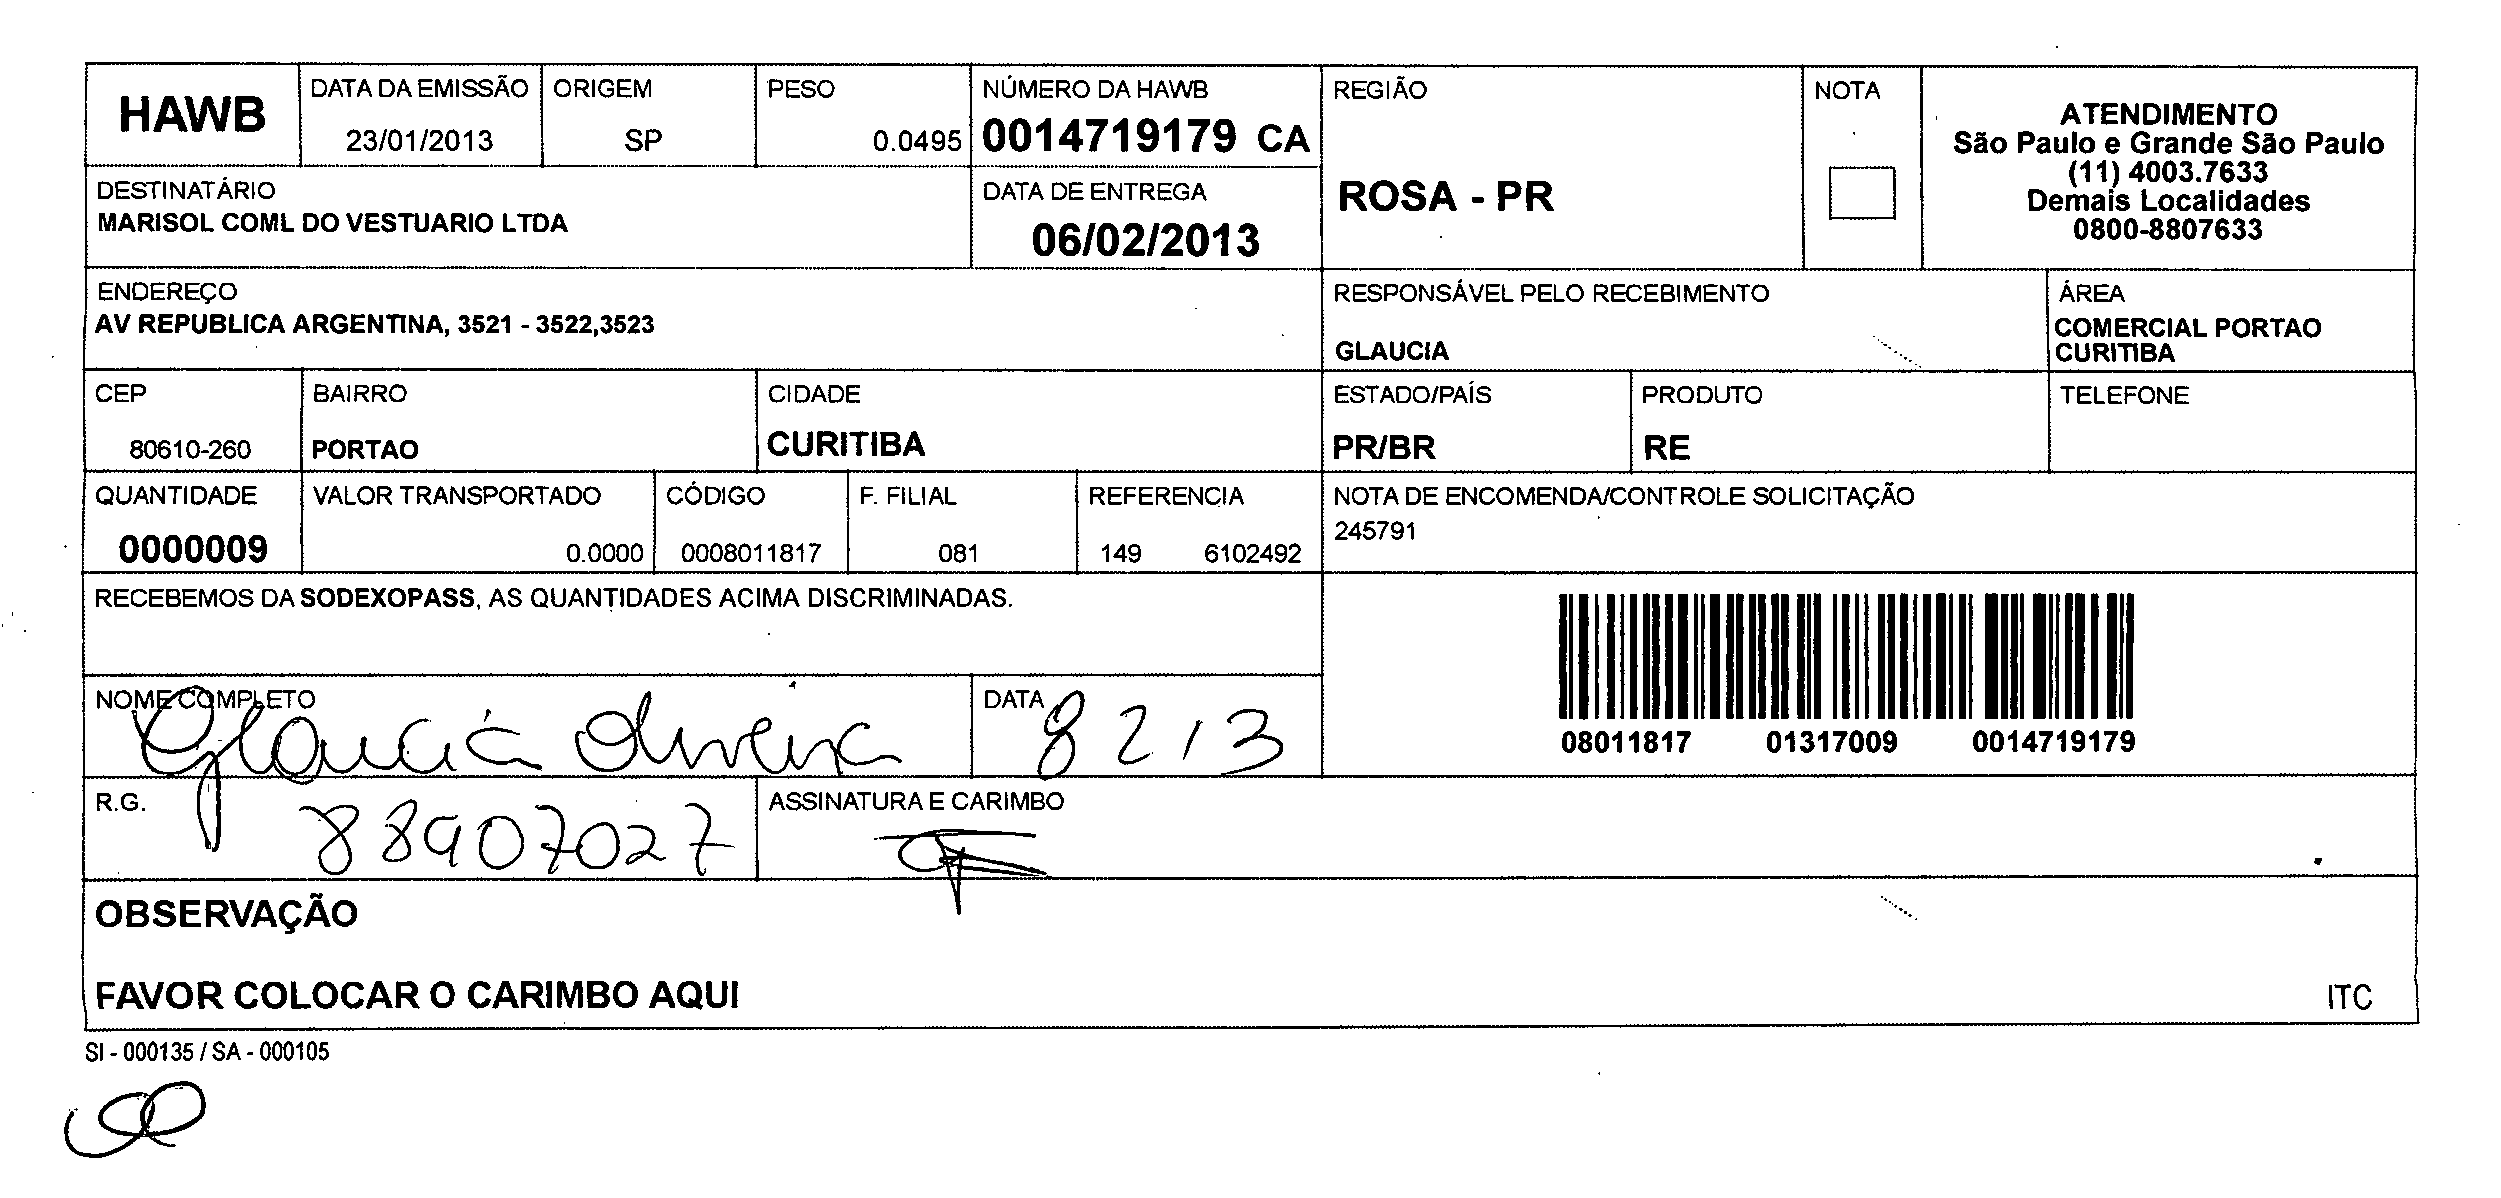 HAWB
DATA DA EMISSÃO
23/01/2013
ORIGEM
SP
PESO
0.0495
NÚMERO DA HAWB
0014719179 CA
REGIÃO
ROSA - PR
NOTA
ATENDIMENTO
São Paulo e Grande São Paulo
(11) 4003.7633
Demais Localidades
0800-8807633
DESTINATÁRIO
MARISOL COML DO VESTUARIO LTDA
DATA DE ENTREGA
06/02/2013
ENDEREÇO
AV REPUBLICA ARGENTINA, 3521 - 3522,3523
RESPONSÁVEL PELO RECEBIMENTO
GLAUCIA
ÁREA
COMERCIAL PORTAO
CURITIBA
CEP
80610-260
BAIRRO
PORTAO
CIDADE
CURITIBA
ESTADO/PAÍS
PR/BR
PRODUTO
RE
TELEFONE
QUANTIDADE
0000009
VALOR TRANSPORTADO
0.0000
CÓDIGO
0008011817
F. FILIAL
081
REFERENCIA
149 6102492
NOTA DE ENCOMENDA/CONTROLE SOLICITAÇÃO
245791
RECEBEMOS DA SODEXOPASS, AS QUANTIDADES ACIMA DISCRIMINADAS.
08011817 01317009 0014719179
NOME COMPLETO
Glaucia Oliveira
DATA
8 2 13
R.G.
88907027
ASSINATURA E CARIMBO
OBSERVAÇÃO
FAVOR COLOCAR O CARIMBO AQUI
ITC
SI - 000135 / SA - 000105